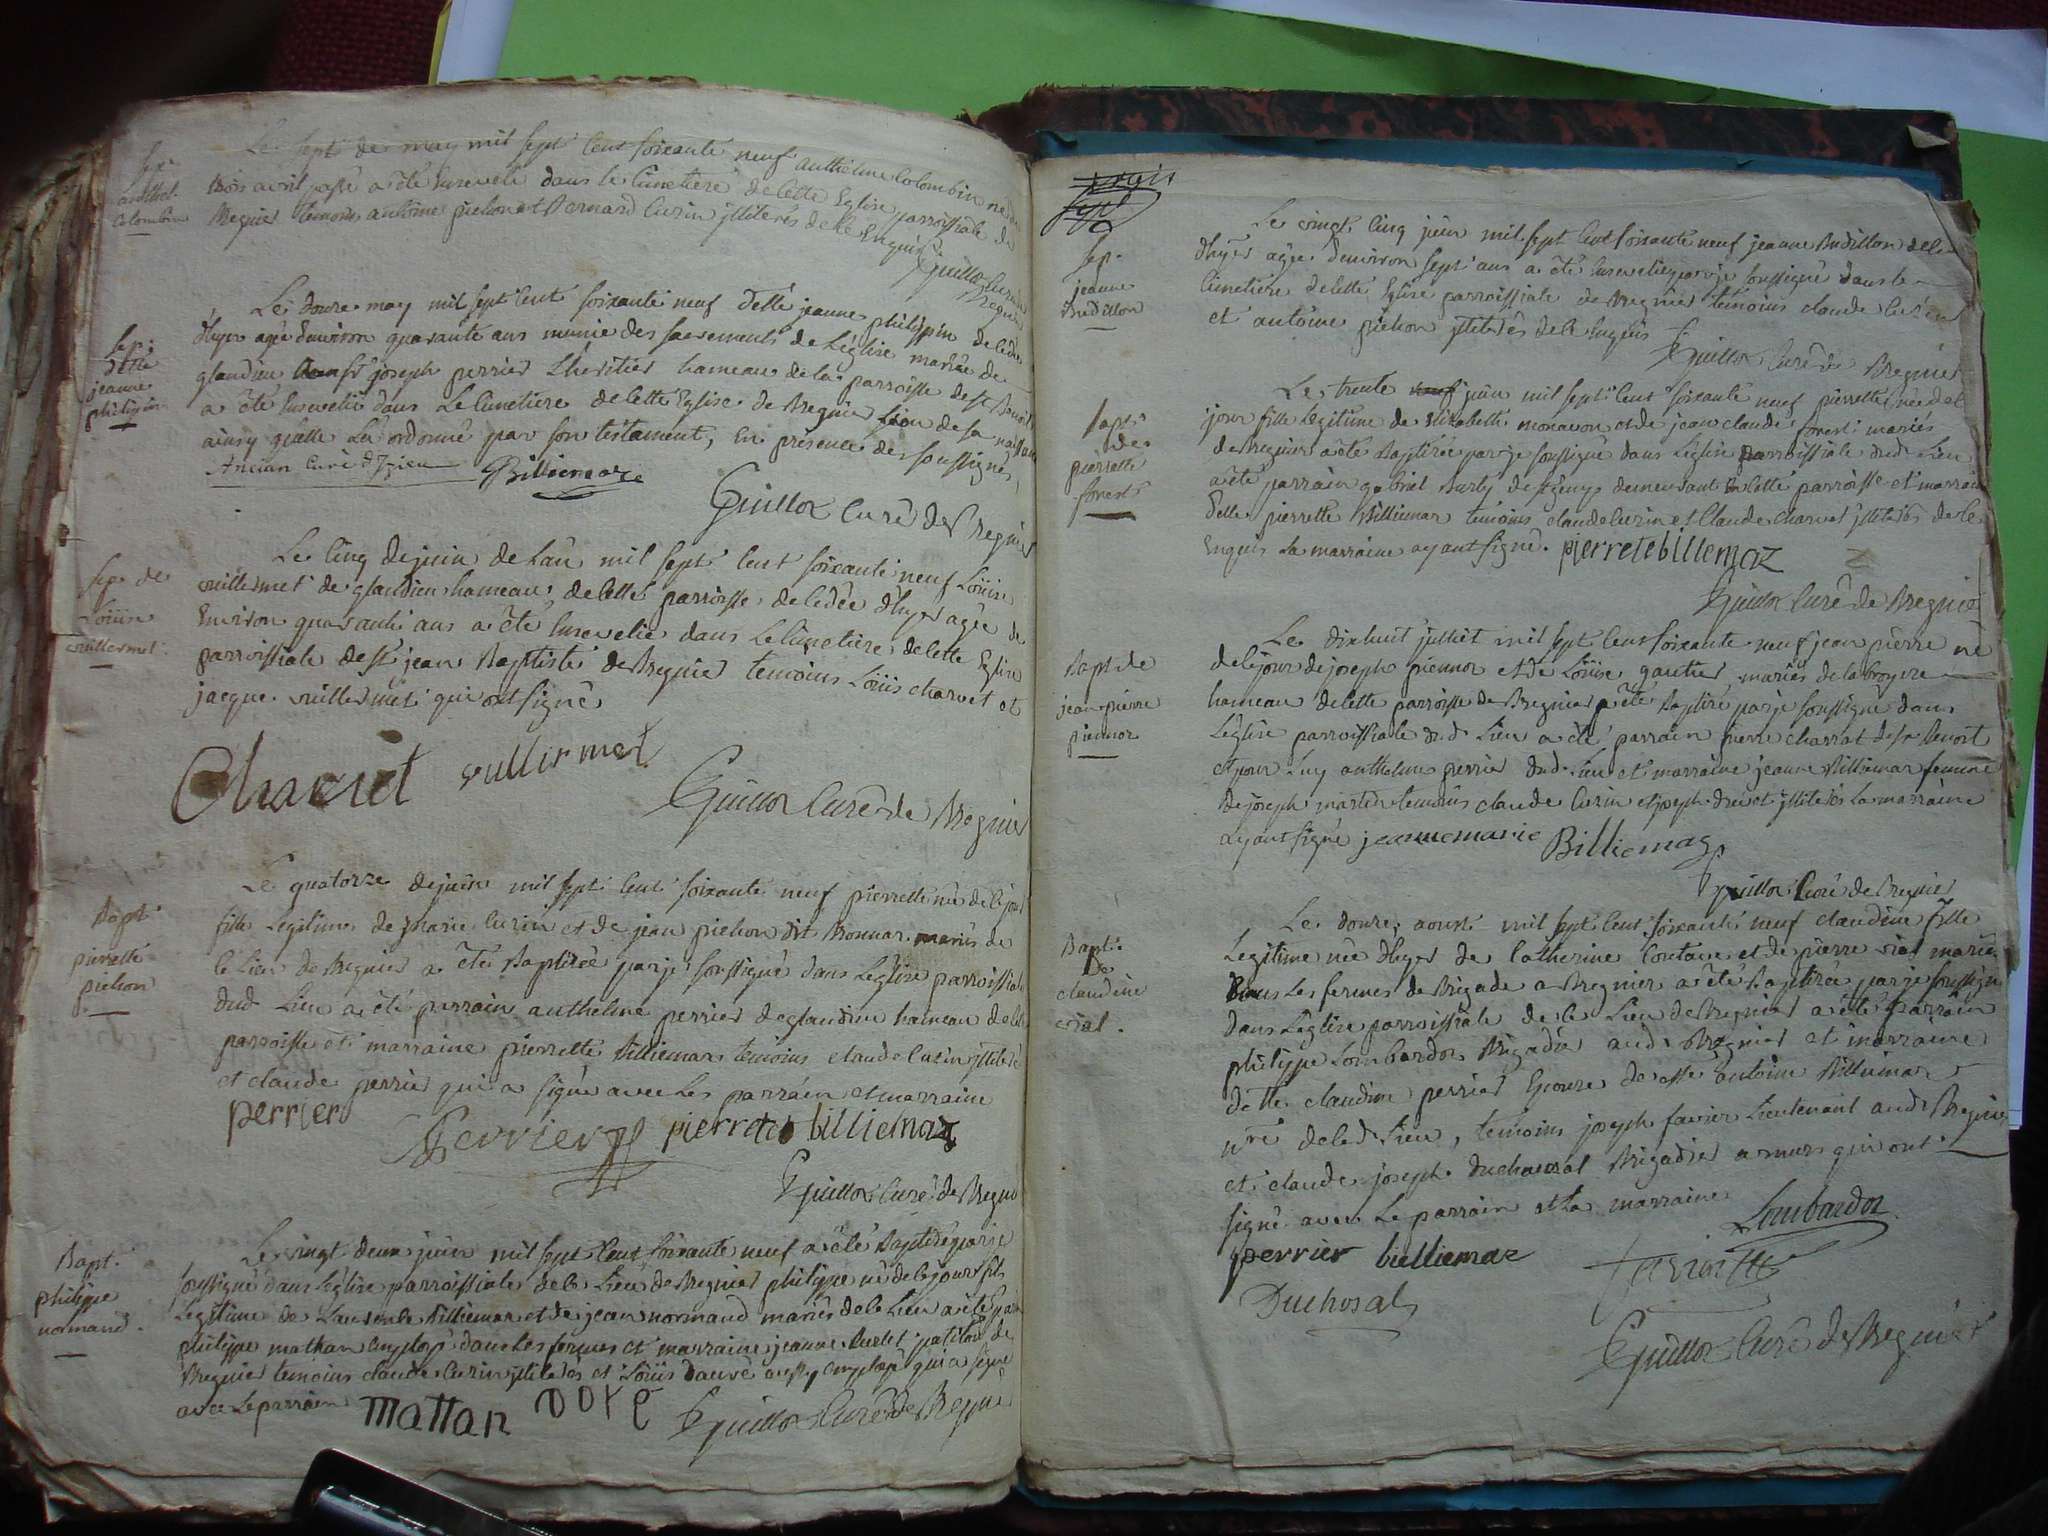 Sep.
anthel.
Colombin
Le sept de may mil sept cent soixante neuf anthelme Colombin né
mois avril passé a été ensevelit dans le Cimetière de cette Eglise parroissiale de
Bregnier temoins antoine pichon et Bernard Curin jllitérés de ce Enquis
Guillot Curé
Bregnier
Sep.
dette
jeanne
philippin
Le douze may mil sept cent soixante neuf dette jeanne philippin décédée
d'hyer agée d'environ quarante ans munie des sacrements de L'église mariée de
glandieu joseph perrier L'heritier hameau de la parroisse de St Benoit
a été ensevelie dans Le Cimetiere de cette Eglise de Bregnier Lieu de sa naissance
ainsy qu'elle La ordonné par son testament, En présence des soussignés,
Ancian Curé d'Izieu Billiemaze
Guillot Curé de Bregnier
Sep. de
Loüise
vuillermet
Le cinq de juin de L'an mil sept cent soixante neuf Loüise
vuillermet de glandieu hameau de cette parroisse decedée d'hyer agée de
Environ quarante ans a été Ensevelie dans Le Cimetiere de cette Eglise
parroissiale de St jean Baptiste de Bregnier temoins Loüis charvet et
jacque vuillermet qui ont signé
Charvet vullirmet
Guillot Curé de Bregnier
Bapt.
pierrette
pichon
Le quatorze de juin mil sept cent soixante neuf pierrette née de ce jour
fille Legitime de marie Curin et de jean pichon dit Bonnar mariés de
ce Lieu de Bregnier a été Baptisée par je soussigné dans L'église parroissiale
dud. Lieu a été parrain anthelme perrier de glandieu hameau de cette
parroisse et marraine pierrette Billiemaz temoins claude Curin jllitéré
et claude perrier qui a signé avec Les parrain et marraine
perrier Perrier pierrete billiemaz
Guillot Curé de Bregnier
Bapt.
philippe
normand
Le vingt deux juin mil sept cent soixante neuf a été Baptisé par je
soussigné dans L'église parroissiale de ce Lieu de Bregnier philippe né de ce jour fils
Legitime de Billiemaz et de jean normand mariés de ce Lieu a été parrain
philippe mathan employé dans les fermes et marraine jeanne Burlet de
Bregnier temoins claude Curin jllitérés et Loüis dauvé aussy employé qui a signé
avec Le parrain
mattan Dove Guillot Curé de Bregnier
Sep.
jeanne
Budillon
Le vingt cinq juin mil sept cent soixante neuf jeanne Budillon
d'hyer agée d'environ sept ans a été Ensevelie par je soussigné dans le
Cimetiere de cette Eglise parroissiale de Bregnier temoins claude Curin
et antoine pichon jllitérés de ce Enquis
Guillot Curé de Bregnier
Bapt.
de
pierrette
forest
Le trente juin mil sept cent soixante neuf pierrette née de ce
jour fille Legitime de Elizabeth monavon et de jean claude forest mariés
de Bregnier a été Baptisée par je soussigné dans L'église parroissiale dud. Lieu
a été parrain gabriel Burty demeurant En cette parroisse et marraine
dette pierrette Billiemaz temoins claude Curin et Claude Charvet jllitérés de ce
Enquis La marraine ayant signé. pierrete billemaz
Guillot Curé de Bregnier
Bapt. de
jean pierre
piennoz
Le dixhuit julliet mil sept cent soixante neuf jean pierre né
de ce jour de joseph piennoz et de Loüise gautier mariés de la broyere
hameau de cette parroisse de Bregnier a été Baptisé par je soussigné dans
L'église parroissiale dud. Lieu a été parrain pierre charrat de St Benoit
et pour Luy anthelme perrier dud. Lieu et marraine jeanne Billiemaz femme
de joseph martin temoins claude Curin et joseph jllitérés La marraine
ayant signé jeanne marie Billiemaz
Guillot Curé de Bregnier
Bapt.
de
claudine
vial.
Le douze aoust mil sept cent soixante neuf claudine fille
Legitime née d'hyer de Catherine Coutave et de pierre vial mariés
dans Les fermes de Brigade a Bregnier a été Baptisée par je soussigné
dans L'église parroissiale de ce Lieu de Bregnier a été parrain
philippe Lombardoz Brigadier aud. Bregnier et marraine
dette claudine perrier Epouze de antoine Billiemaz
nre de ced. Lieu, temoins joseph favier Lieutenant aud. Bregnier
et claude joseph duchauzal Brigadier a murs qui ont
signé avec Le parrain et La marraine Lombardoz
perrier bielliemaz
Duchosal
Guillot Curé de Bregnier